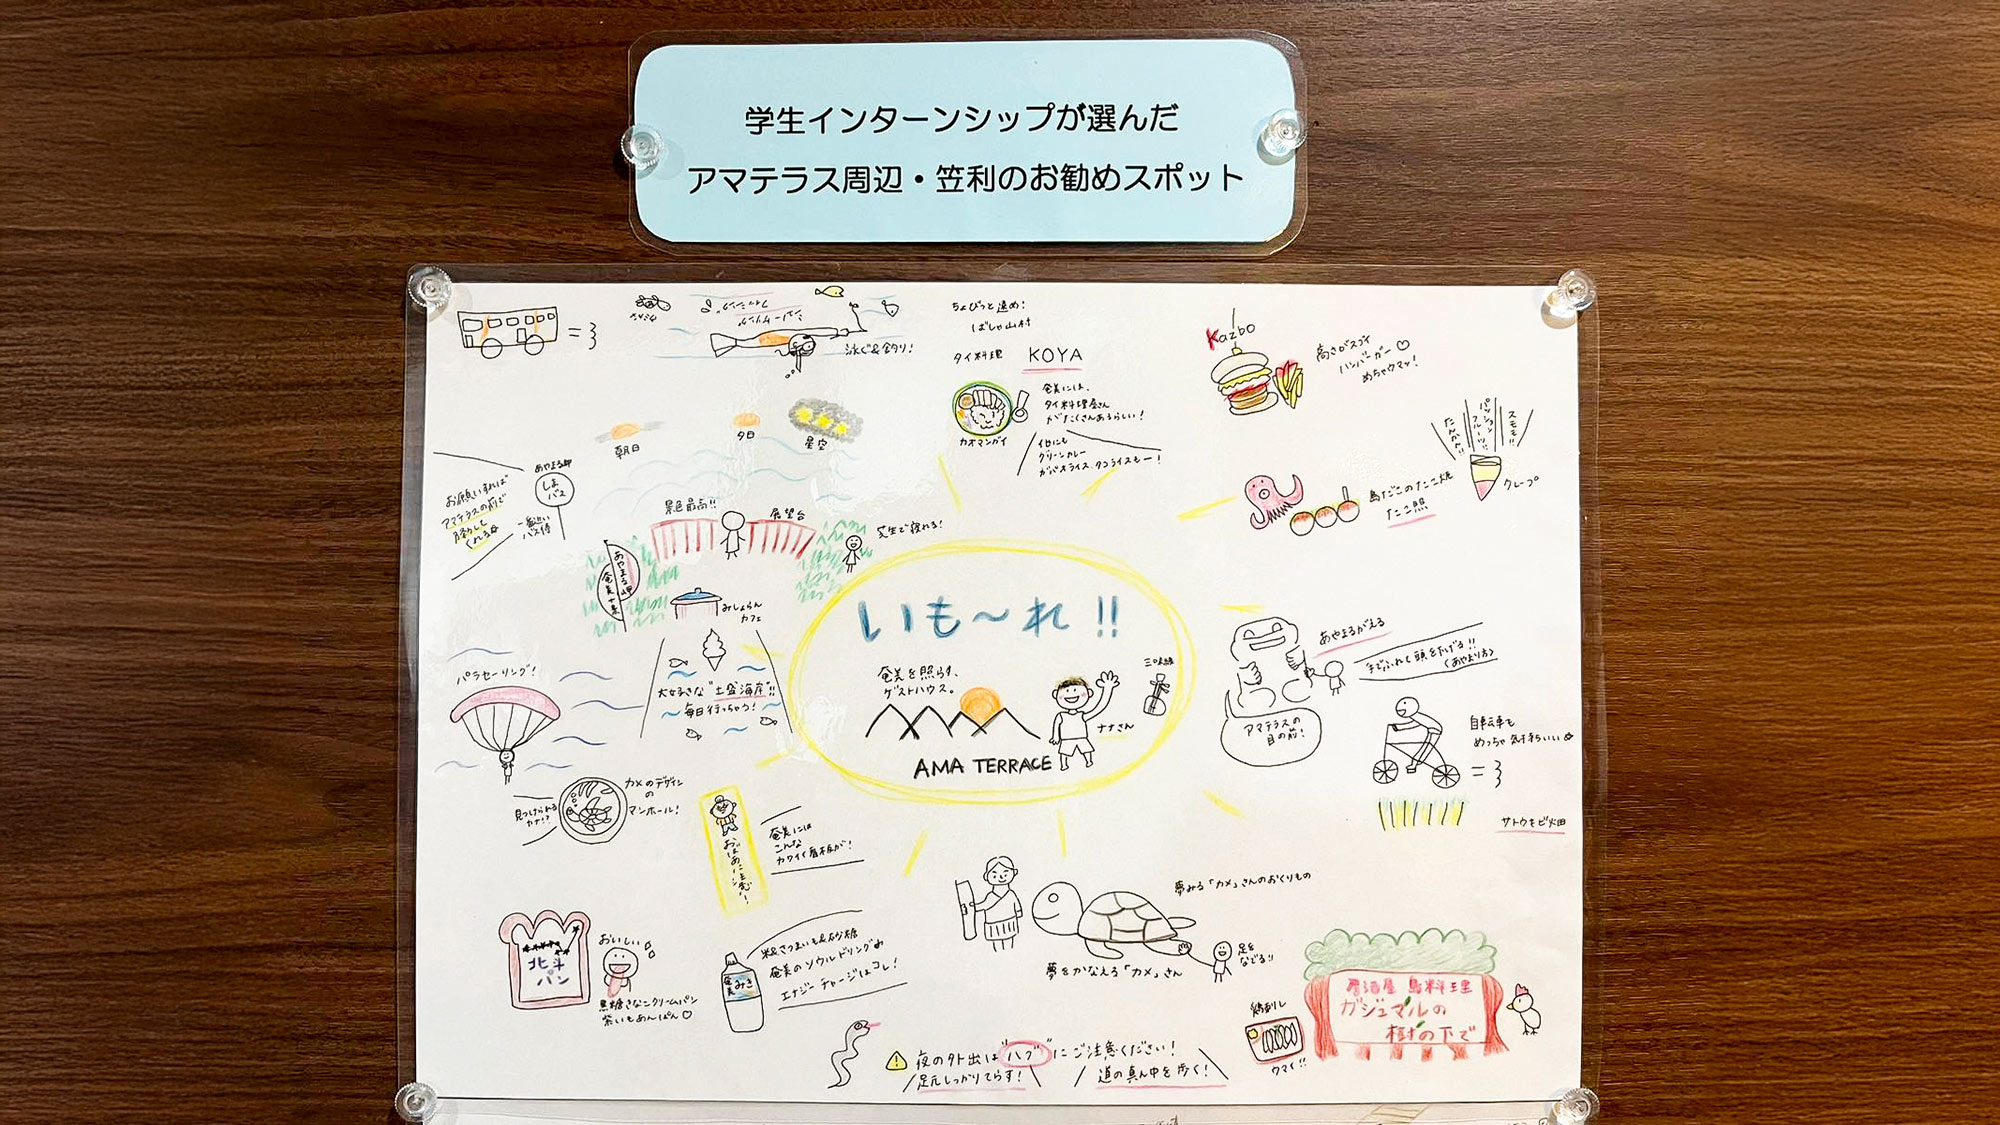 学生インターンシップが選んだ
アマテラス周辺・笠利のお勧めスポット
泳ぐ&釣り!
ちょびっと遠め!
ばしゃ山村
タイ料理 KOYA
奄美には、
タイ料理屋さん
がたくさんあるらしい!
カオマンガイ
他にも
グリーンカレー
ガパオライス、タコライスもー!
Kazbo
高さがスゴイ
ハンバーガー♡
めちゃウマッ!
たんかん!!
パッションフルーツ!!
スモモ!!
クレープ
島だこのたこ焼
たこ照
朝日
夕日
星空
あやまる岬
しまバス
一番近い
バス停
お願いすれば
アマテラスの前で
景色最高!!
展望台
芝生で寝れる!
あやまる岬
奄美十景
みしょらん
カフェ
大好きな"土盛海岸"!!
毎日行っちゃう!
パラセーリング!
いも〜れ!!
奄美を照らす、
ゲストハウス。
AMA TERRACE
ナナさん
三味線
あやまるがえる
手でふれて頭を下げる!!
アマテラスの
目の前!
自転車も
めっちゃ気持ちいい
サトウキビ畑
カメのデザイン
の
マンホール!
見つけられる
カナ!?
おばぁ注意!
奄美には
こんな
カワイイ看板が!
北斗
パン
おいしい
黒糖きなこクリームパン
紫いもあんぱん♡
奄美みき
米&さつまいも&砂糖
奄美のソウルドリンク
エナジーチャージはコレ!
夢みる「カメ」さんのおくりもの
夢をかなえる「カメ」さん
足を
なでる!!
⚠夜の外出は"ハブ"にご注意ください!
足元しっかりてらす!
道の真ん中を歩く!
居酒屋 島料理
ガジュマルの
樹の下で
鶏刺し
ウマイ!!